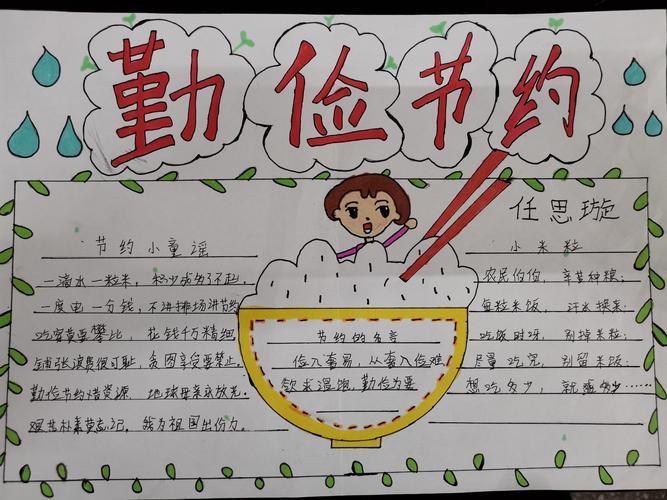 勤俭节约
任思璇
节约小童谣
一滴水一粒米，积少成多了不起。
一度电一分钱，不讲排场讲节约
吃穿莫要攀比，花钱千万精细
铺张浪费很可耻，贪图享受要禁止。
勤俭节约惜资源，地球母亲永放光。
艰苦朴素莫忘记，我为祖国出份力。
节约的名言
俭入奢易，从奢入俭难
欲求温饱，勤俭为要
小米粒
农民伯伯，辛苦种粮；
每粒米饭，汗水换来；
吃饭时呀，别掉米粒；
尽量吃完，别留米饭；
想吃多少，就盛多少……